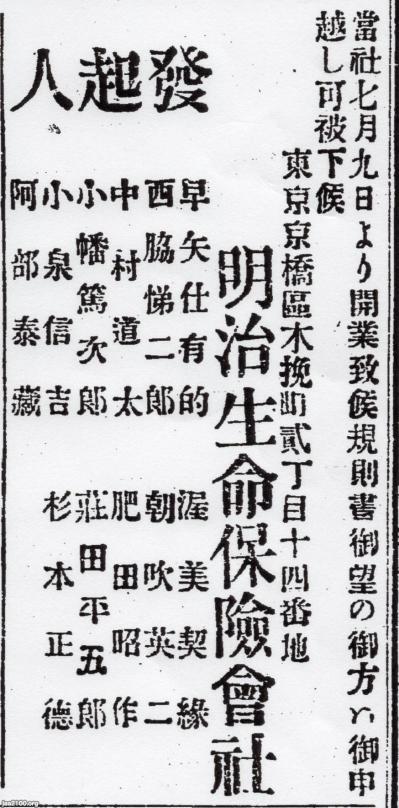 當社七月九日より開業致候規則書御望の御方ハ御申
越し可被下候
東京京橋區木挽町貳丁目十四番地
明治生命保險會社
發起人
早矢仕有的
渥美契緣
西脇悌二郎
朝吹英二
中村道太
肥田昭作
小幡篤次郎
莊田平五郎
小泉信吉
杉本正德
阿部泰藏
jaa2100.org